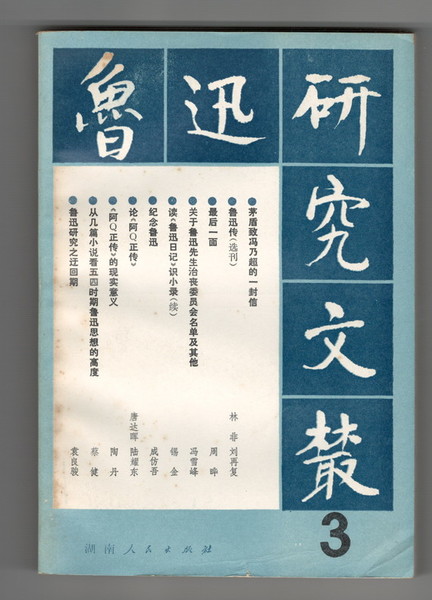 魯迅研究文叢
3
茅盾致冯乃超的一封信
鲁迅传(选刊) 林 非 刘再复
最后一面 周 晔
关于鲁迅先生治丧委员会名单及其他 冯雪峰
读《鲁迅日记》识小录(续) 锡 金
纪念鲁迅 成仿吾
论《阿Q正传》 唐达晖 陆耀东
《阿Q正传》的现实意义 陶 丹
从几篇小说看五四时期鲁迅思想的高度 蔡 健
鲁迅研究之迂回期 袁良骏
湖南人民出版社